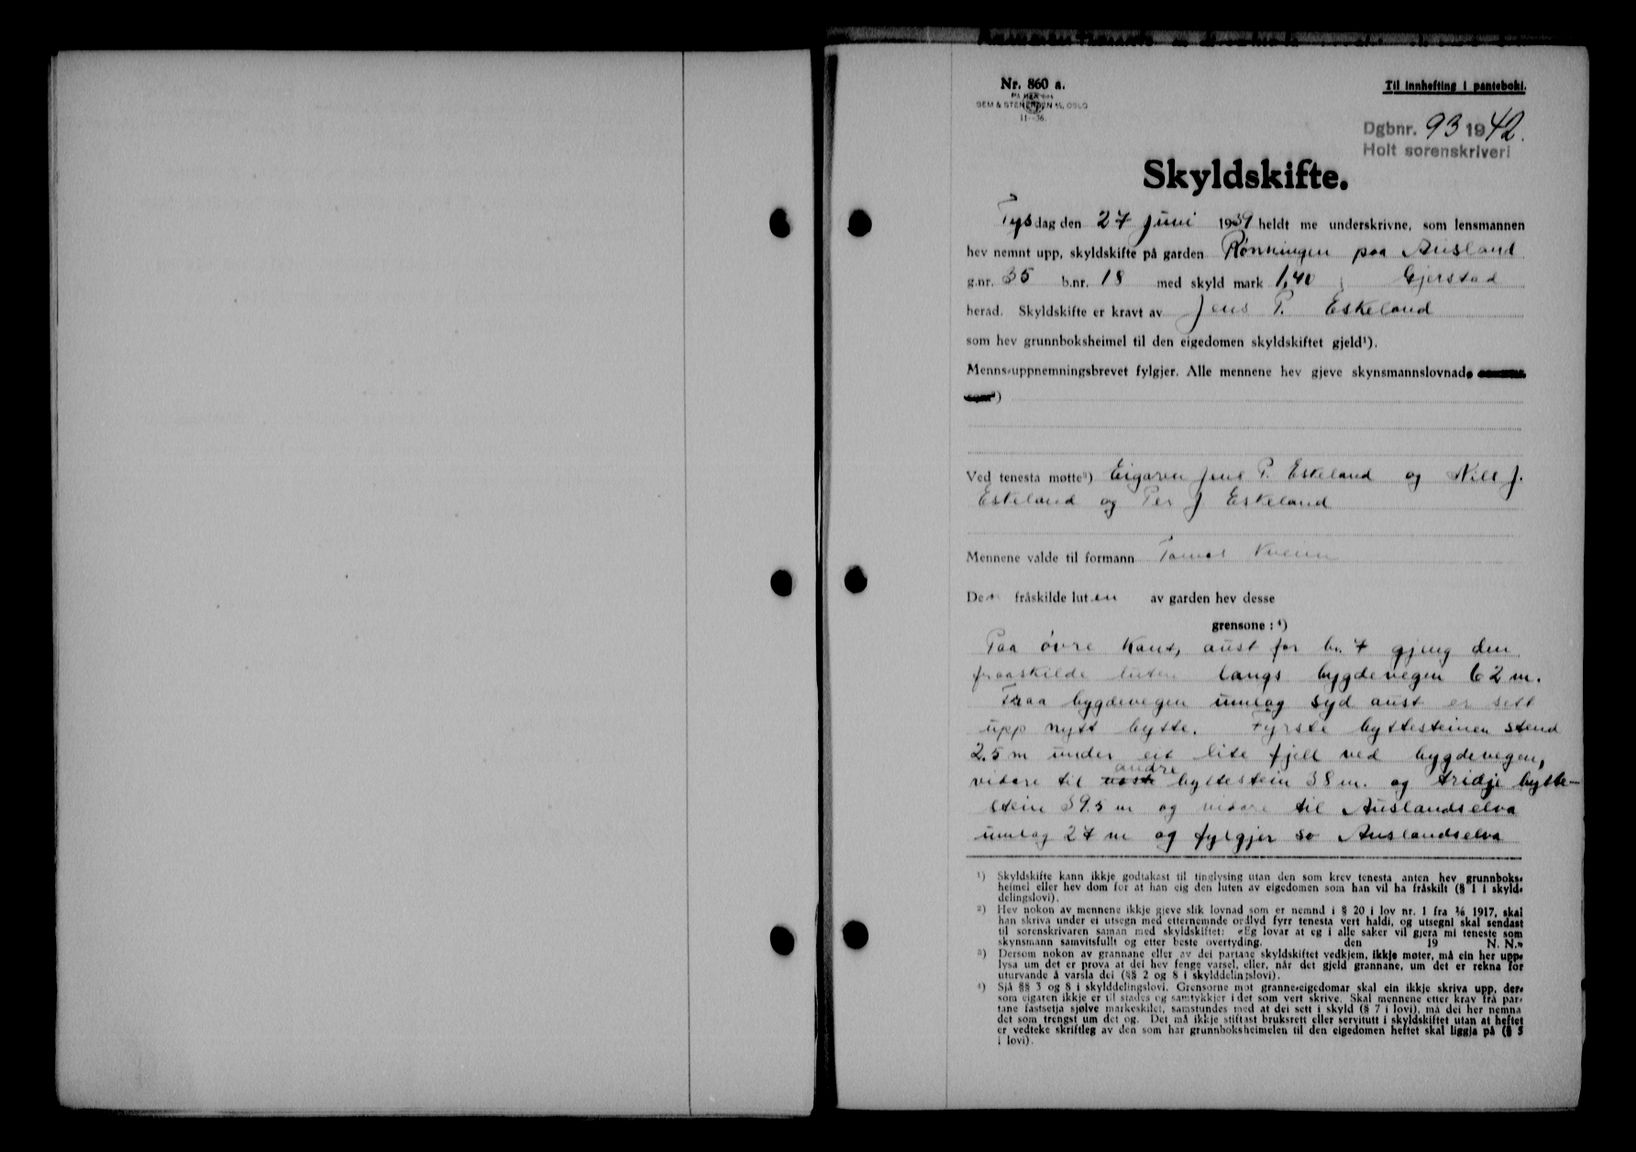 Nr. 860 a.
SEM & STENERSEN A/S, OSLO
11—36.
Til innhefting i panteboki.
Dgbnr. 93 1942.
Holt sorenskriveri
Skyldskifte.
Tysdag den 27 juni 1939 heldt me underskrivne, som lensmannen
hev nemnt upp, skyldskifte på garden Rönningen paa Ausland
g.nr. 35 b.nr. 18 med skyld mark 1,40 i Gjerstad
herad. Skyldskifte er kravt av Jens P. Eskeland
som hev grunnboksheimel til den eigedomen skyldskiftet gjeld¹).
Menns-uppnemningsbrevet fylgjer. Alle mennene hev gjeve skynsmannslovnad.
Ved tenesta møtte³) Eigaren Jens P. Eskeland og Nils J.
Eskeland og Per J Eskeland
Mennene valde til formann Tomas
Den fråskilde luten av garden hev desse
grensone : ⁴)
Paa övre kant, aust for br. 7 gjeng den
fraaskilde luten langs bygdevegen 62 m.
Fraa bygdevegen umlag syd aust er sett
upp nytt bytte. Fyrste byttesteinen stend
2.5 m under eit lite fjell ved bygdevegen,
vidare til andre byttestein 38 m. og tridje bytte-
stein 39.5 m og vidare til Auslandselva
umlag 27 m og fylgjer so Auslandselva
¹) Skyldskifte kann ikkje godtakast til tinglysing utan den som krev tenesta anten hev grunnboks-
heimel eller hev dom for at han eig den luten av eigedomen som han vil ha fråskilt (§ 1 i skyld-
delingslovi).
²) Hev nokon av mennene ikkje gjeve slik lovnad som er nemnd i § 20 i lov nr. 1 fra ¹/₆ 1917, skal
han skriva under ei utsegn med etternemnde ordlyd fyrr tenesta vert haldi, og utsegni skal sendast
til sorenskrivaren saman med skyldskiftet: «Eg lovar at eg i alle saker vil gjera mi teneste som
skynsmann samvitsfullt og etter beste overtyding. den 19 N. N.»
³) Dersom nokon av grannane eller av dei partane skyldskiftet vedkjem, ikkje møter, må ein her upp-
lysa um det er prova at dei hev fenge varsel, eller, når det gjeld grannane, um det er rekna for
uturvande å varsla dei (§§ 2 og 8 i skylddelingslovi).
⁴) Sjå §§ 3 og 8 i skylddelingslovi. Grensorne mot granne-eigedomar skal ein ikkje skriva upp, der-
som eigaren ikkje er til stades og samtykkjer i det som vert skrive. Skal mennene etter krav frå par-
tane fastsetja sjølve markeskilet, samstundes med at dei sett i skyld (§ 7 i lovi), må dei her nemna
det som trengst um det og. Det må ikkje stiftast bruksrett eller servitutt i skyldskiftet utan at heftet
er vedteke skriftleg av den som har grunnboksheimelen til den eigedomen heftet skal liggja på (§ 5
i lovi).